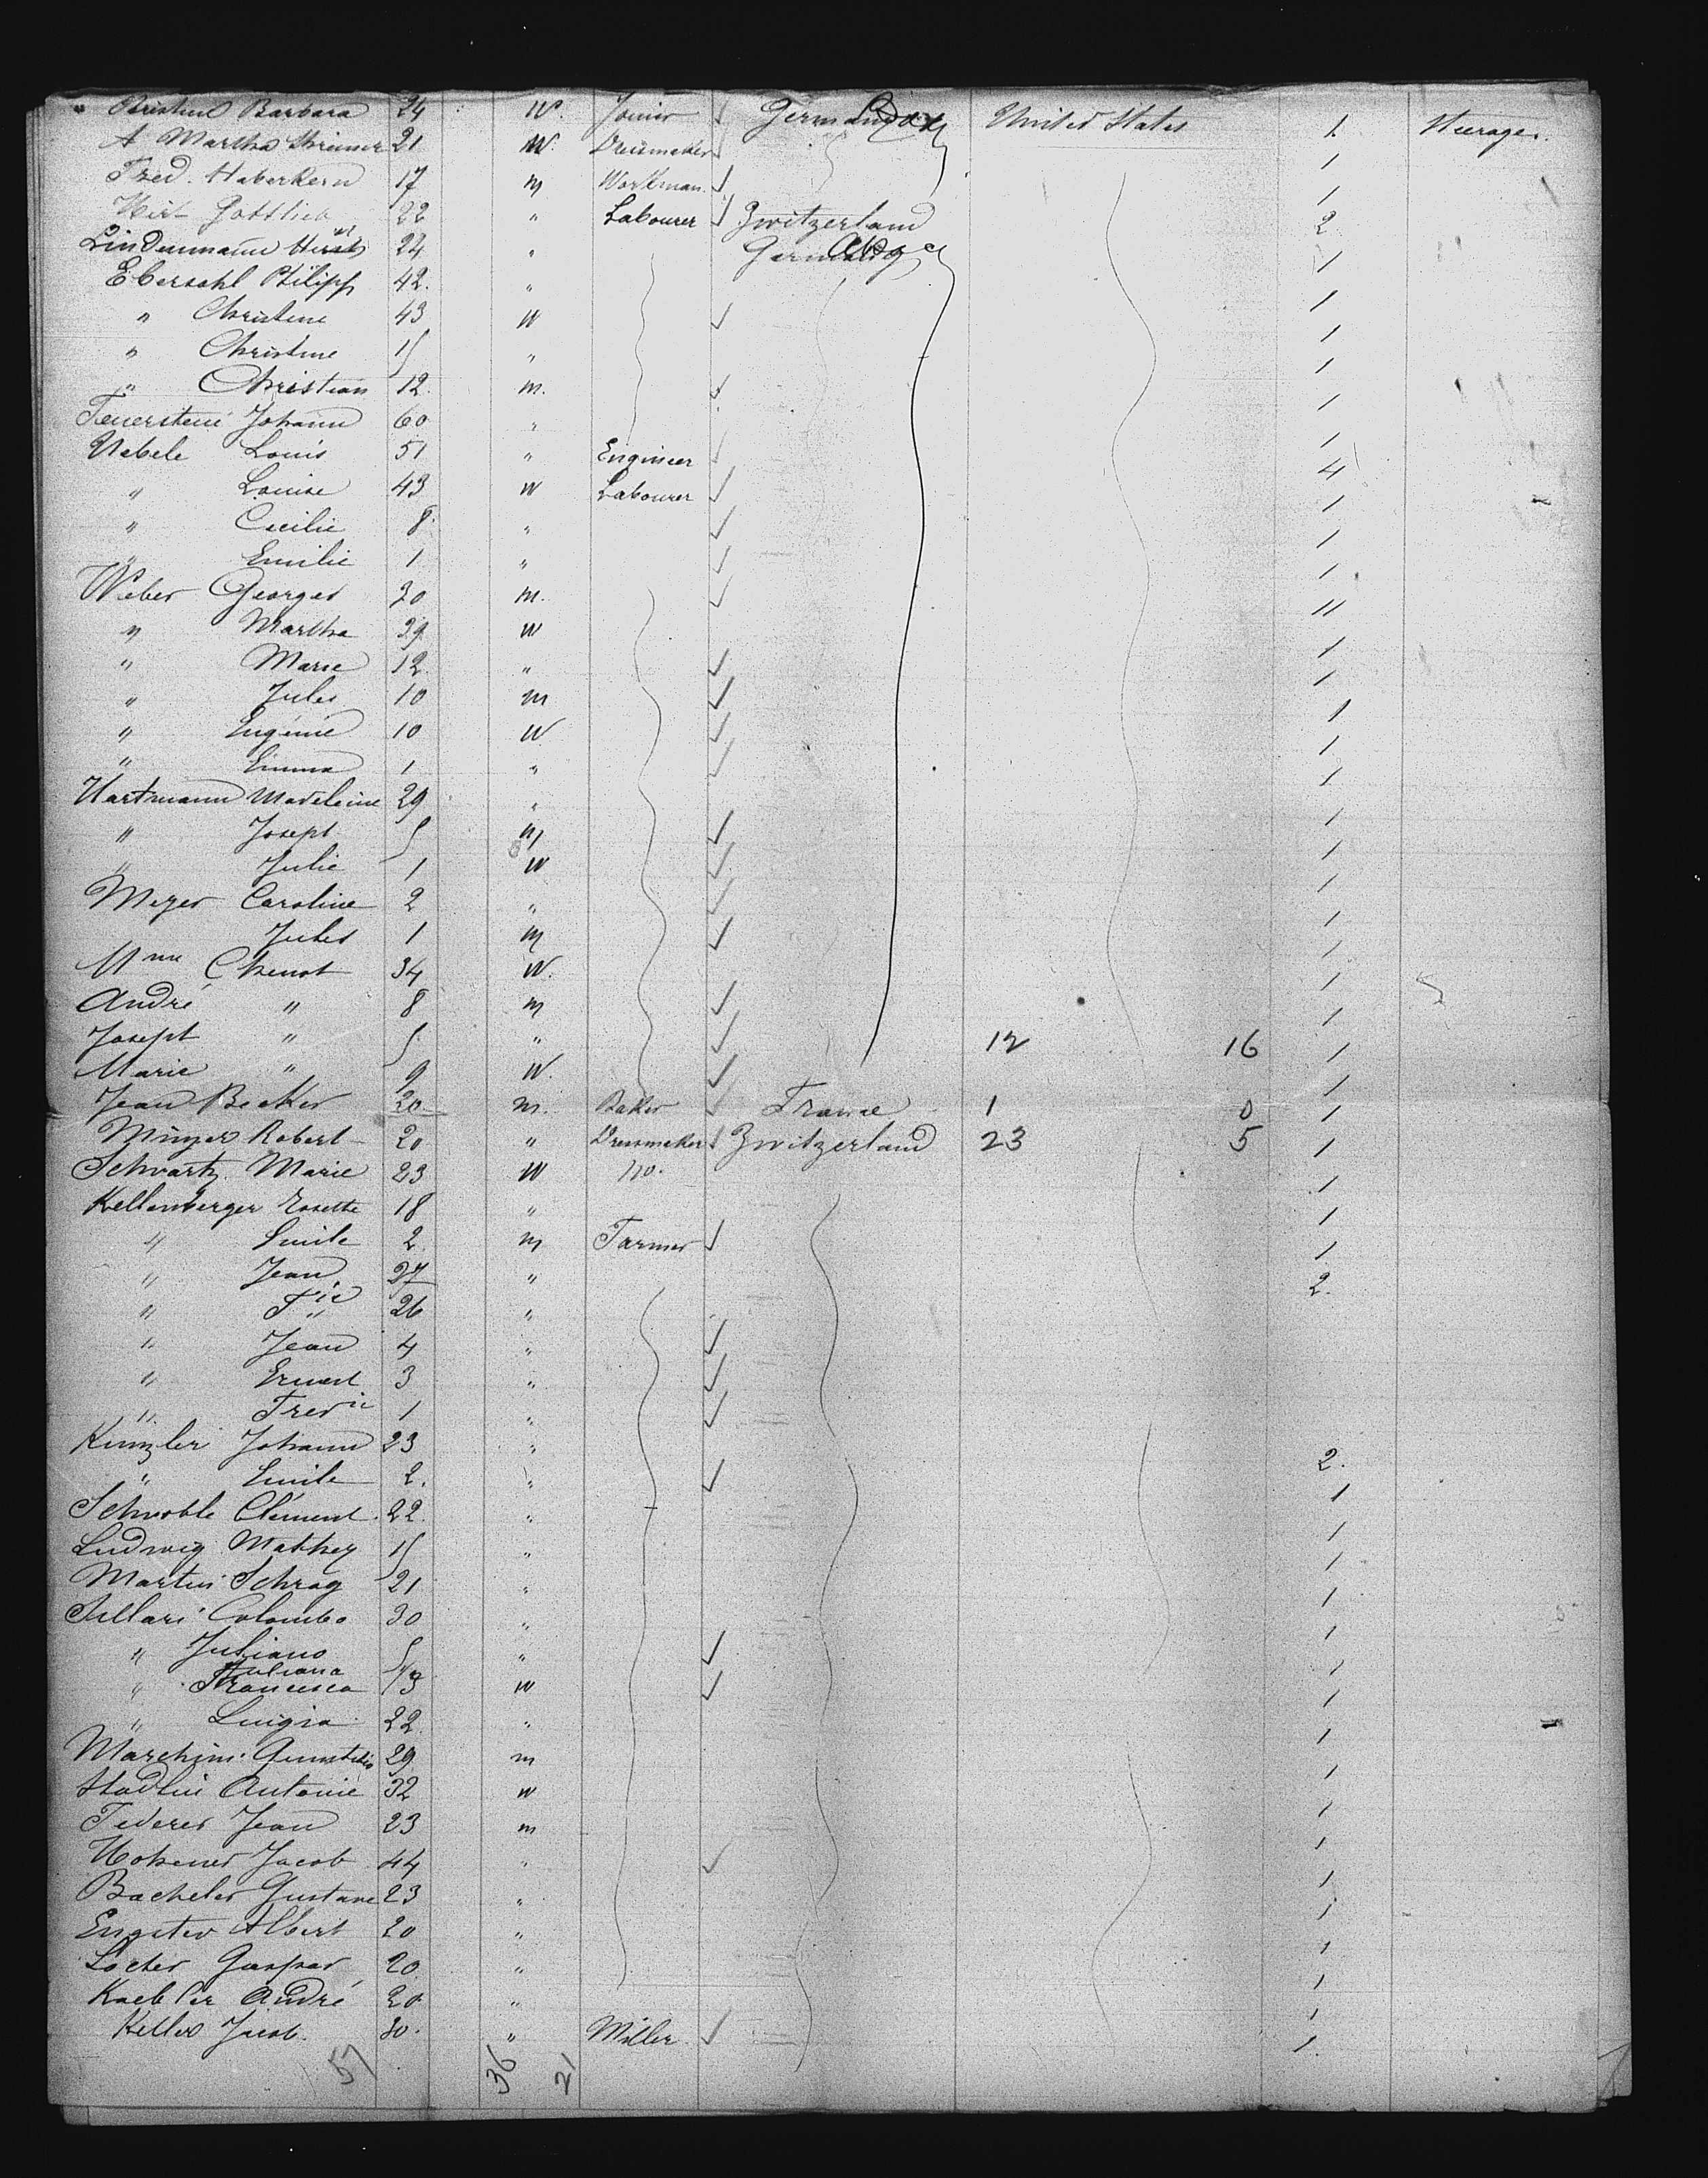 " Christine Barbara 24 W. Joiner Germany United States 1 Steerage.
A Martha 21 W. Dressmaker 1
Fred. Haberkern 17 m Workman. 1
Hirt Gottlieb 22 " Labourer Zwitzerland 2
Lindenmann 24 " Germany 1
Ebersohl Philipp 42. " 1
" Christine 43 W 1
" Christine 15 " 1
" Christian 12. m. 1
Feuerstein Johann 60 " 1
Uebele Louis 51 " Engineer 4
" Louise 43 W Labourer 1
" Cecilie 8 " 1
" Emilie 1 " 1
Weber Georges 30 m. 11
" Martha 39 W 1
" Marie 12. " 1
" Jules 10 m 1
" Eugénie 10 W 1
" Emma 1 " 1
Hartmann Madeleine 29 " 1
" Joseph 5 m 1
" Julie 1 W 1
Meyer Caroline 2 " 1
Jules 1 m 1
Mme Chenot 34 W. 1
André " 8 m 1
Joseph " 5 " 12 16 1
Marie " 9 W. 1
Jean Becker 20 m. Baker France 1 0 1
Minger Robert 20 " Dressmaker Zwitzerland 23 5 1
Schwartz Marie 23 W no. 1
Kellenberger Rosette 18 " 1
" Emile 2 m Farmer 1
" Jean 27 " 2.
" Fric 26 "
" Jean 4 "
" Ernest 3 "
" Fredric 1 "
Kunzler Johann 23 " 2.
" Emile 2. " 1
Schwoble Clément 22. " 1
Ludwig Mathey 15 " 1
Martin Schrag 21 " 1
Colombo 30 " 1
" Juliano 5 " 1
" Juliana Francesca 13 W 1
" Luigia 22. " 1
Marchini 29 m 1
Stadlin Antonie 32 W 1
Federer Jean 23 m 1
Jacob 44 " 1
Bacheler Gustave 23 " 1
Engster Albert 20 " 1
Locher Gaspar 20 " 1
André 20 " 1
Keller Jacob. 30. " Miller 1.
57 36 21